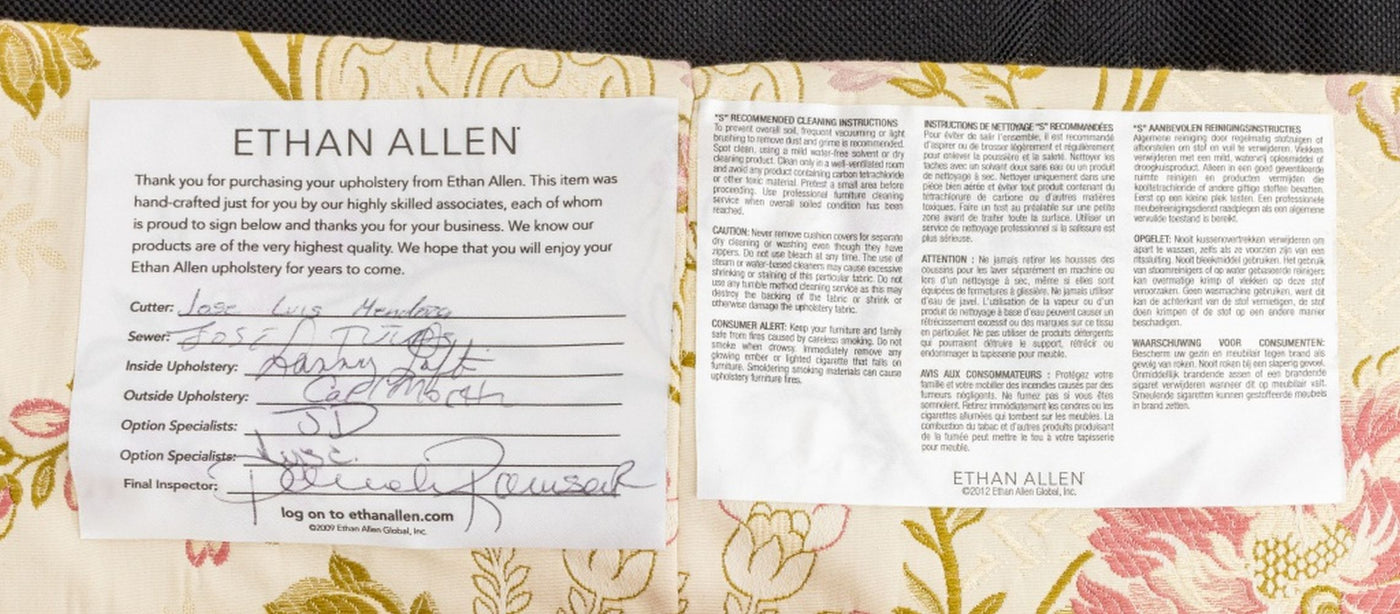 ETHAN ALLEN
Thank you for purchasing your upholstery from Ethan Allen. This item was
hand-crafted just for you by our highly skilled associates, each of whom
is proud to sign below and thanks you for your business. We know our
products are of the very highest quality. We hope that you will enjoy your
Ethan Allen upholstery for years to come.
Cutter: Jose Luis Mendoza
Sewer: JOSE
Inside Upholstery:
Outside Upholstery: Carl
Option Specialists: JD
Option Specialists:
Final Inspector:
log on to ethanallen.com
©2009 Ethan Allen Global, Inc.
"S" RECOMMENDED CLEANING INSTRUCTIONS
To prevent overall soil, frequent vacuuming or light
brushing to remove dust and grime is recommended.
Spot clean, using a mild water-free solvent or dry
cleaning product. Clean only in a well-ventilated room
and avoid any product containing carbon tetrachloride
or other toxic material. Pretest a small area before
proceeding. Use professional furniture cleaning
service when overall soiled condition has been
reached.
CAUTION: Never remove cushion covers for separate
dry cleaning or washing even though they have
zippers. Do not use bleach at any time. The use of
steam or water-based cleaners may cause excessive
shrinking or staining of this particular fabric. Do not
use any tumble method cleaning service as this may
destroy the backing of the fabric or shrink or
otherwise damage the upholstery fabric.
CONSUMER ALERT: Keep your furniture and family
safe from fires caused by careless smoking. Do not
smoke when drowsy. Immediately remove any
glowing ember or lighted cigarette that falls on
furniture. Smoldering smoking materials can cause
upholstery furniture fires.
INSTRUCTIONS DE NETTOYAGE "S" RECOMMANDÉES
Pour éviter de salir l'ensemble, il est recommandé
d'aspirer ou de brosser légèrement et régulièrement
pour enlever la poussière et la saleté. Nettoyer les
taches avec un solvant doux sans eau ou un produit
de nettoyage à sec. Nettoyer uniquement dans une
pièce bien aérée et éviter tout produit contenant du
tétrachlorure de carbone ou d'autres matières
toxiques. Faire un test au préalable sur une petite
zone avant de traiter toute la surface. Utiliser un
service de nettoyage professionnel si la salissure est
plus sérieuse.
ATTENTION : Ne jamais retirer les housses des
coussins pour les laver séparément en machine ou
lors d'un nettoyage à sec, même si elles sont
équipées de fermetures à glissière. Ne jamais utiliser
d'eau de javel. L'utilisation de la vapeur ou d'un
produit de nettoyage à base d'eau peuvent causer un
rétrécissement excessif ou des marques sur ce tissu
en particulier. Ne pas utiliser de produits détergents
qui pourraient détruire le support, rétrécir ou
endommager la tapisserie pour meuble.
AVIS AUX CONSOMMATEURS : Protégez votre
famille et votre mobilier des incendies causés par des
fumeurs négligents. Ne fumez pas si vous êtes
somnolent. Retirez immédiatement les cendres ou les
cigarettes allumées qui tombent sur les meubles. La
combustion du tabac et d'autres produits produisant
de la fumée peut mettre le feu à votre tapisserie
pour meuble.
"S" AANBEVOLEN REINIGINGSINSTRUCTIES
Algemene reiniging door regelmatig stofzuigen of
afborstelen om stof en vuil te verwijderen. Vlekken
verwijderen met een mild, watervrij oplosmiddel of
droogkuisproduct. Alleen in een goed geventileerde
ruimte reinigen en producten vermijden die
kooltetrachloride of andere giftige stoffen bevatten.
Eerst op een kleine plek testen. Een professionele
meubelreinigingsdienst raadplegen als een algemene
vervuilde toestand is bereikt.
OPGELET: Nooit kussenovertrekken verwijderen om
apart te wassen, zelfs als ze voorzien zijn van een
ritssluiting. Nooit bleekmiddel gebruiken. Het gebruik
van stoomreinigers of op water gebaseerde reinigers
kan overmatige krimp of vlekken op deze stof
veroorzaken. Geen wasmachine gebruiken, want dit
kan de achterkant van de stof vernietigen, de stof
doen krimpen of de stof op een andere manier
beschadigen.
WAARSCHUWING VOOR CONSUMENTEN:
Bescherm uw gezin en meubilair tegen brand als
gevolg van roken. Nooit roken bij een slaperig gevoel.
Onmiddellijk brandende assen of een brandende
sigaret verwijderen wanneer dit op meubilair valt.
Smeulende sigaretten kunnen gestoffeerde meubels
in brand zetten.
ETHAN ALLEN
©2012 Ethan Allen Global, Inc.